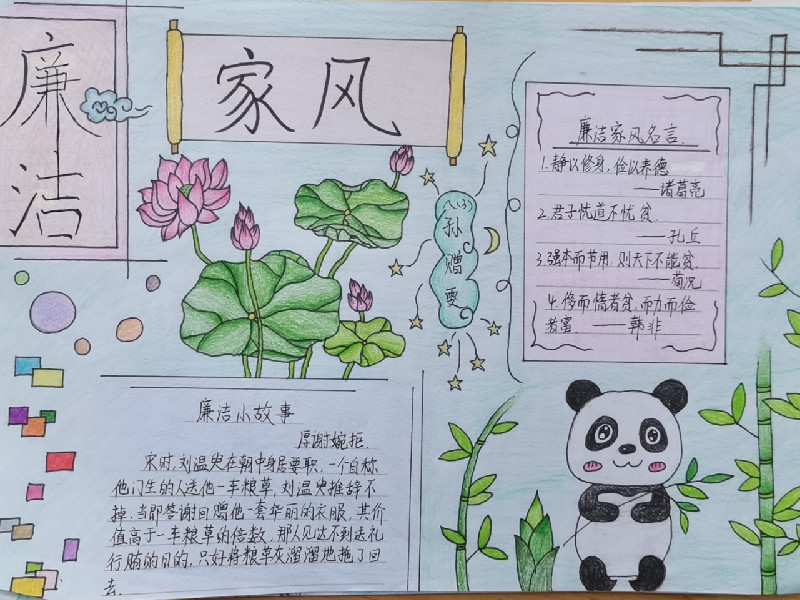 廉洁
家风
八(3)
孙
赠
雯
廉洁家风名言
1.静以修身,俭以养德
——诸葛亮
2.君子忧道不忧贫
——孔丘
3.强本而节用,则天下不能贫
——荀况
4.侈而惰者贫,而力而俭
者富 ——韩非
廉洁小故事
厚谢婉拒
宋时,刘温叟在朝中身居要职,一个自称
他门生的人送他一车粮草,刘温叟推辞不
掉,当即答谢回赠他一套华丽的衣服,其价
值高于一车粮草的倍数,那人见达不到送礼
行贿的目的,只好将粮草灰溜溜地拖了回
去.